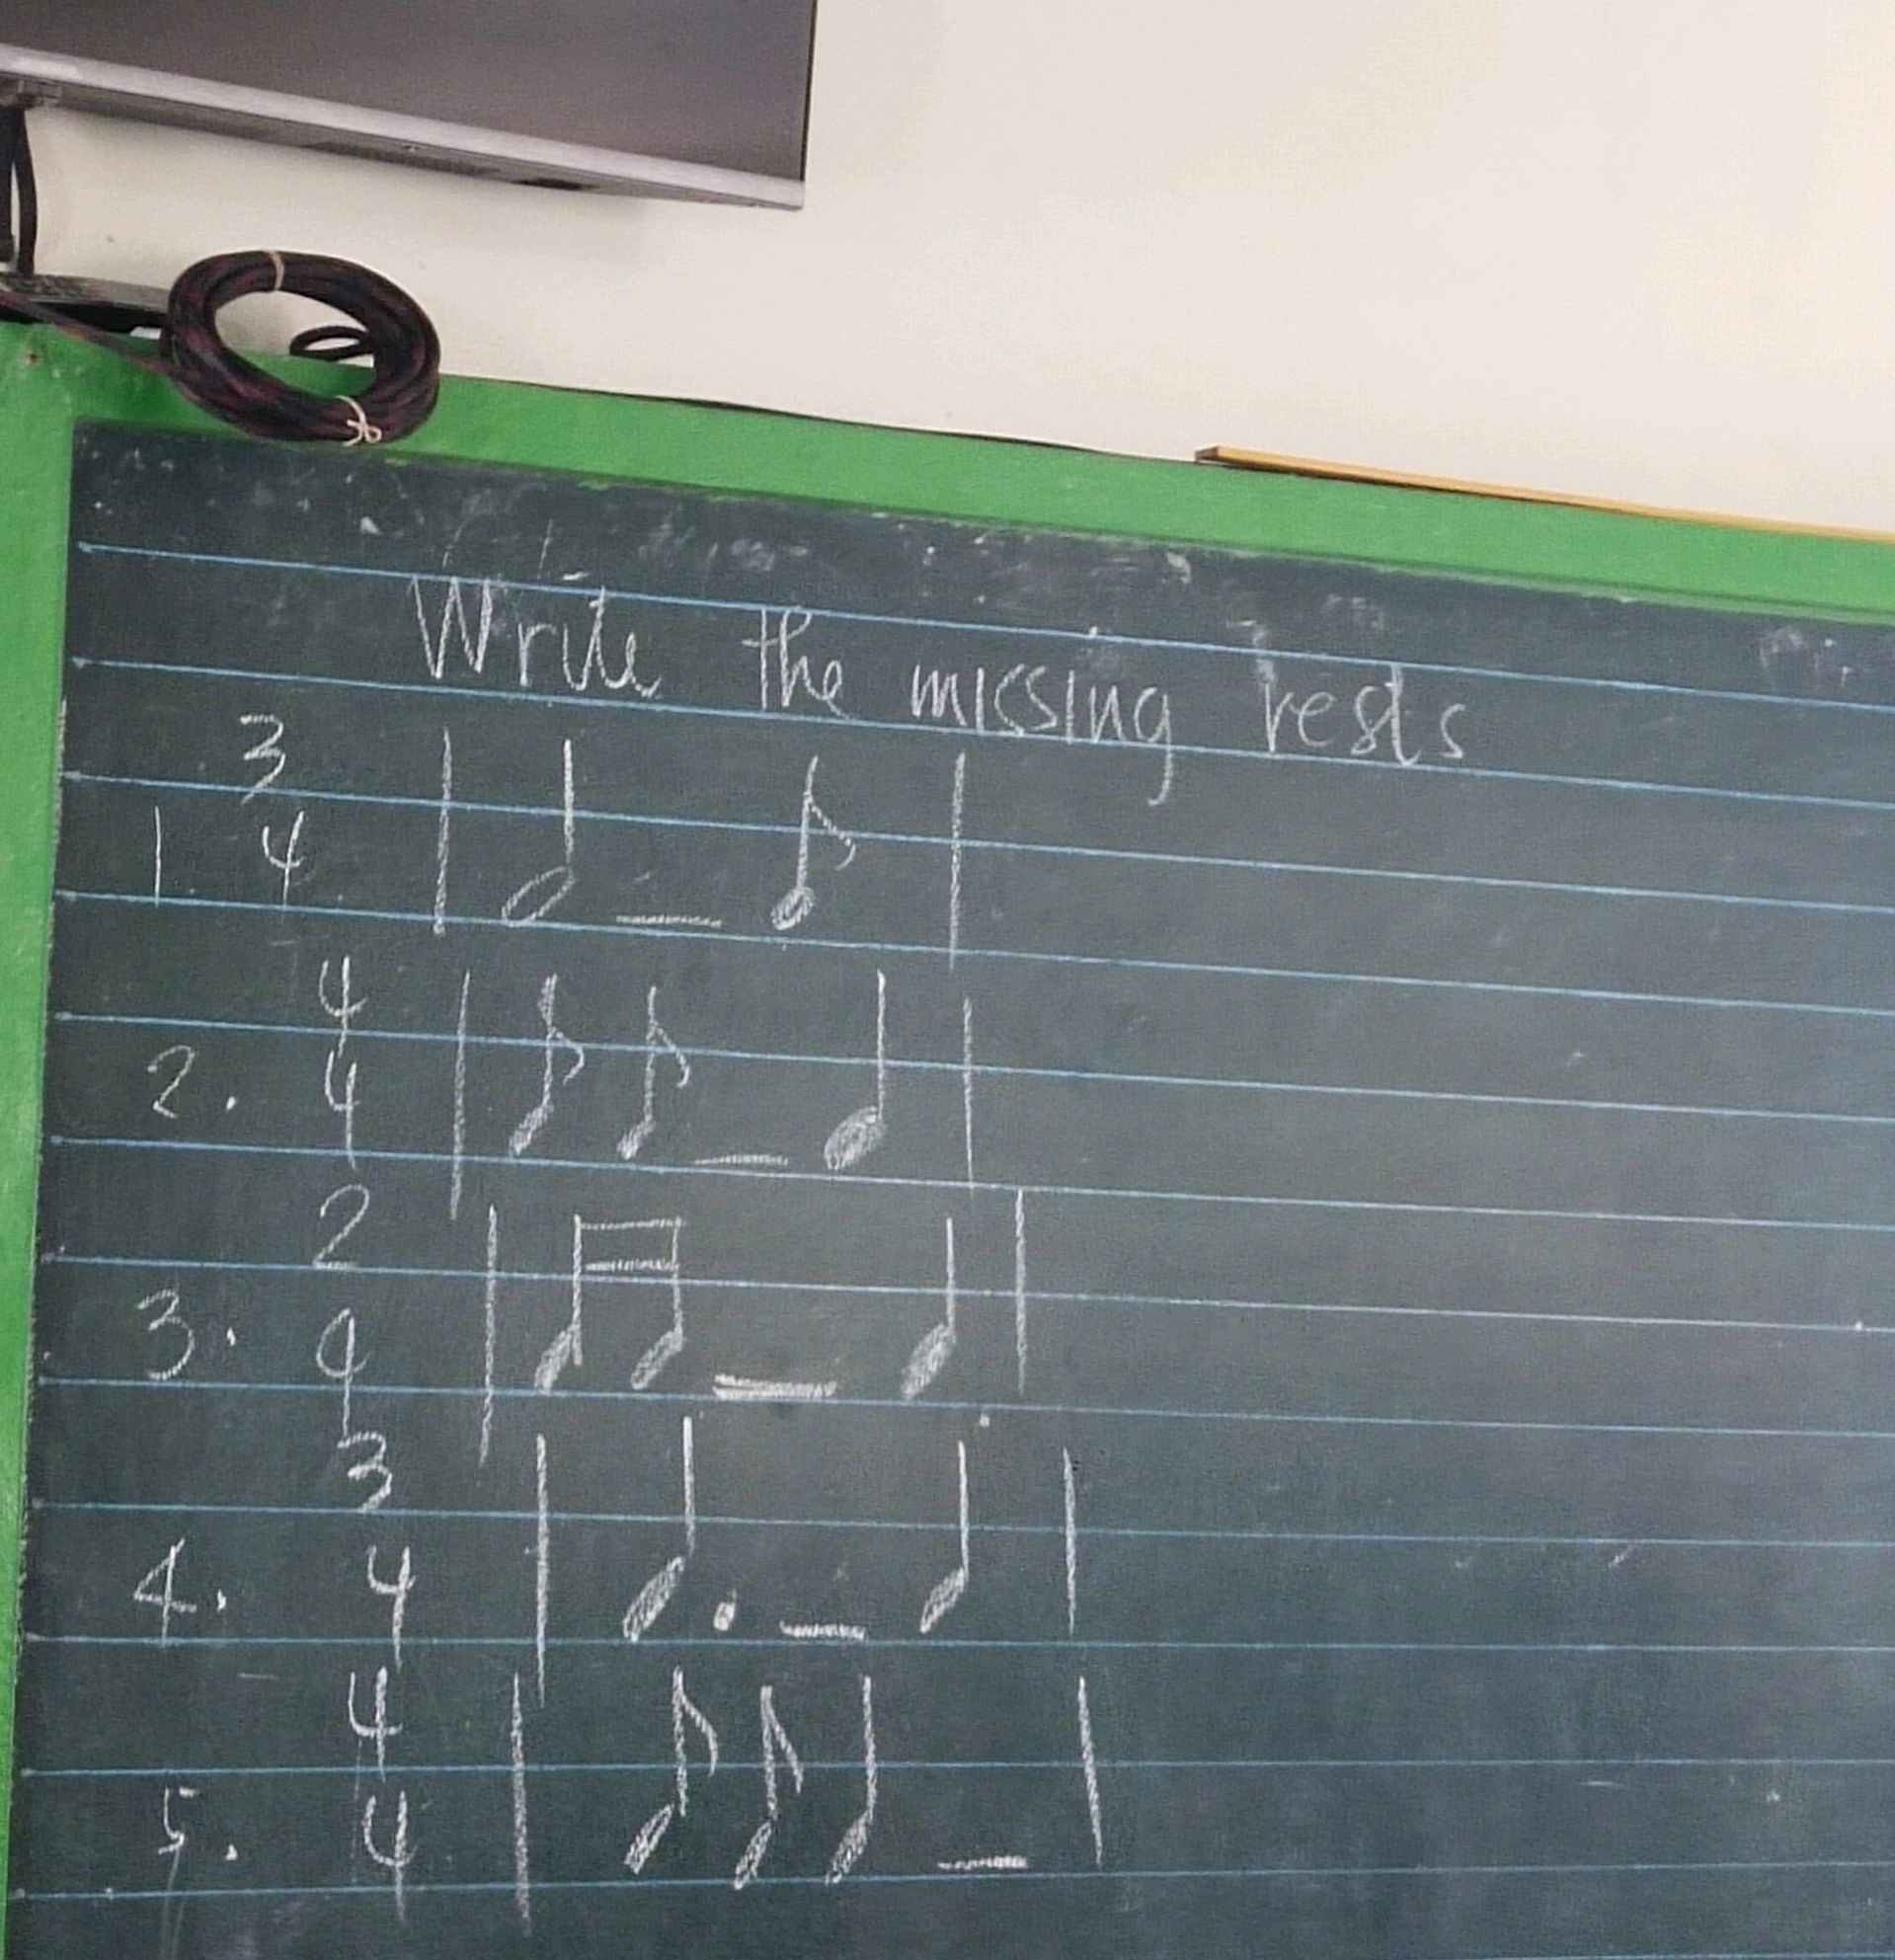 Write the missing rests
3
1 4
4
2. 4
2
3. 4
3
4. 4
4
5. 4